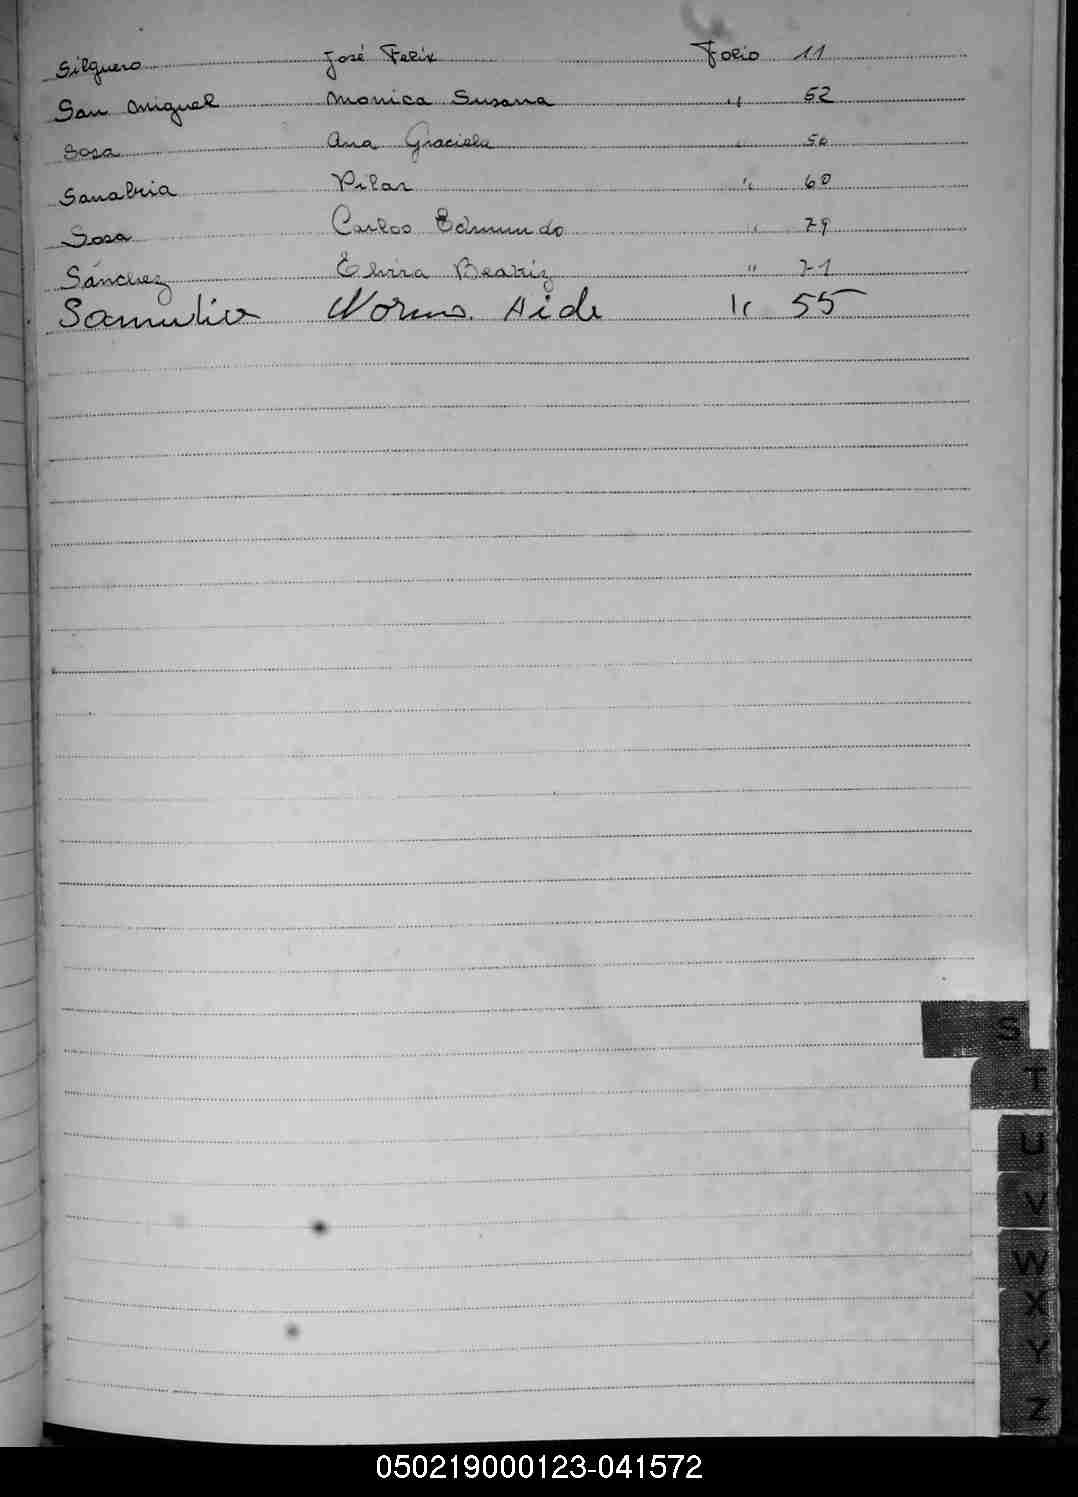 Silguero José Felix Folio 11
San Miguel Monica Susana " 52
Sosa Ana Graciela " 50
Sanabria Pilar " 60
Sosa Carlos Edmundo " 79
Sánchez Elvira Beatriz " 71
Norma Aide " 55
S
T
U
V
W
X
Y
Z
050219000123-041572